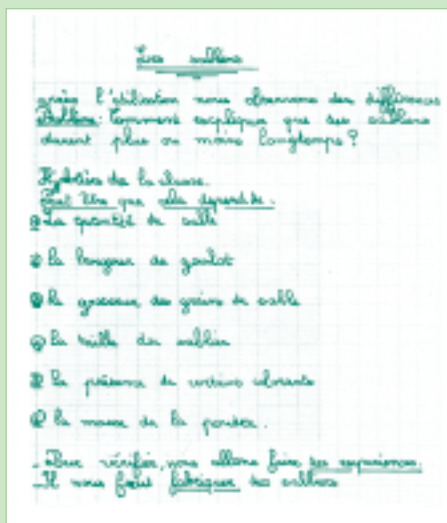 Les sabliers
après l'utilisation nous observons des différences
Problème: Comment expliquer que des sabliers
durent plus ou moins longtemps?
Hypothèses de la classe.
Peut être que cela dépend de:
La quantité de sable
la longueur du goulot
la grosseur des grains de sable
la taille du sablier
la présence de certains colorants
la masse de la poudre.
- Pour vérifier, nous allons faire des expériences.
- Il nous faut fabriquer des sabliers